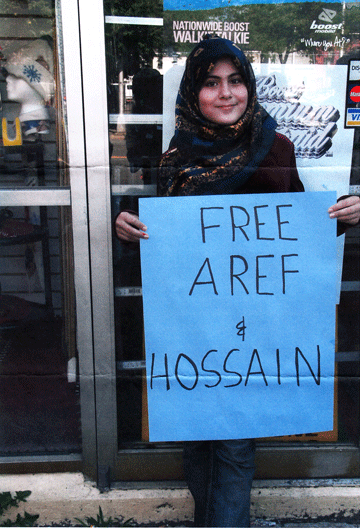 NATIONWIDE BOOST
WALKIE TALKIE
boost
mobile
"Where You At?"
FREE
AREF
&
HOSSAIN